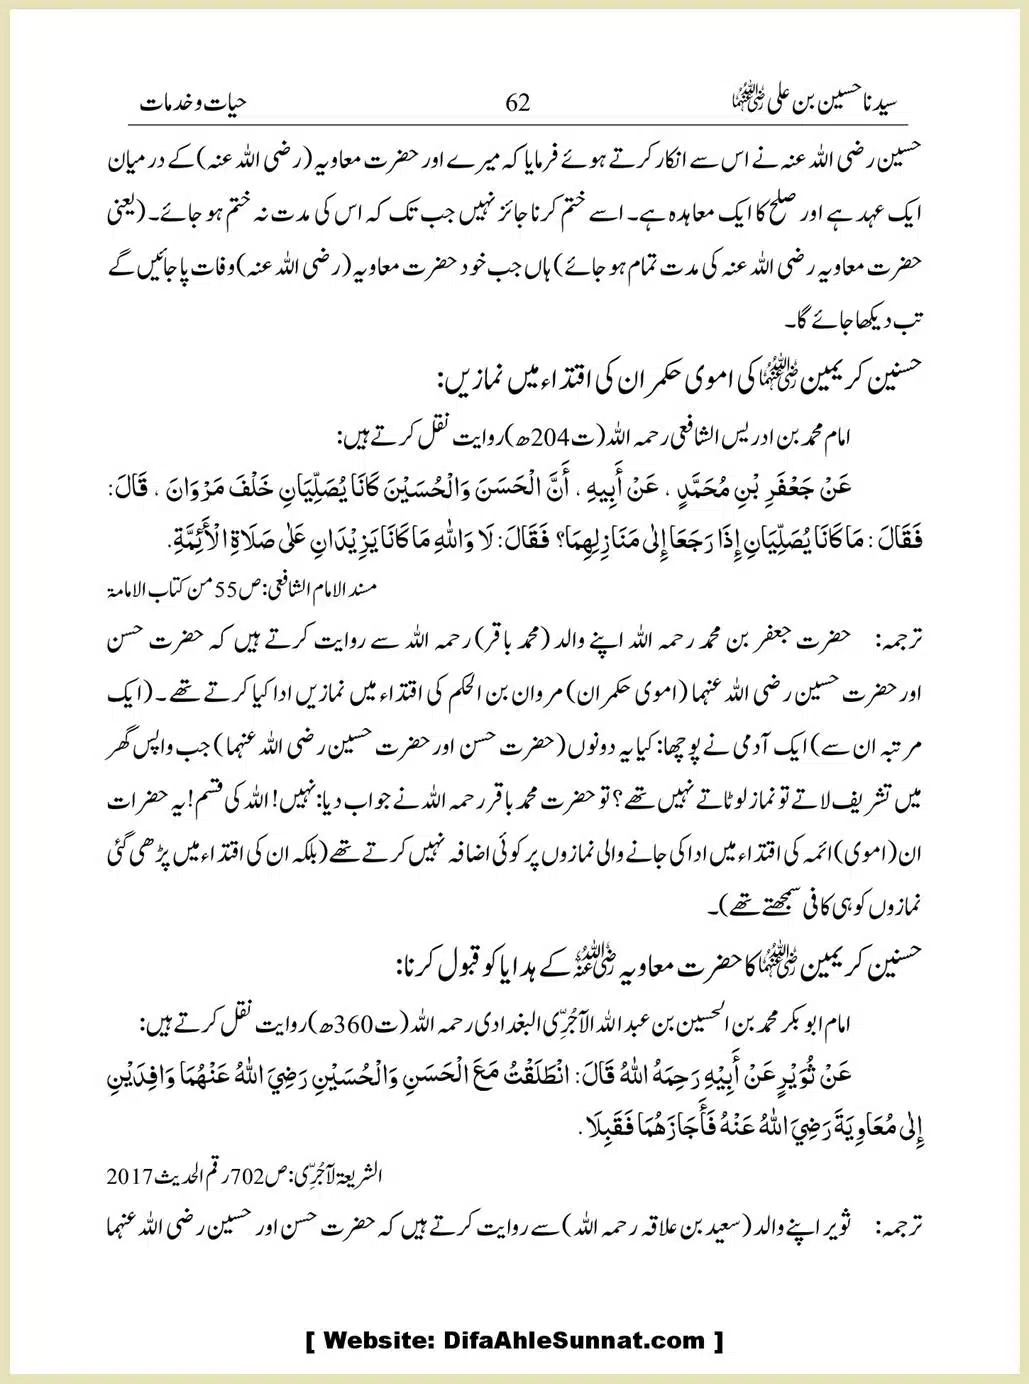 سیدنا حسین بن علی رضی اللہ عنہما 62 حیات و خدمات
حسین رضی اللہ عنہ نے اس سے انکار کرتے ہوئے فرمایا کہ میرے اور حضرت معاویہ (رضی اللہ عنہ) کے درمیان
ایک عہد ہے اور صلح کا ایک معاہدہ ہے۔ اسے ختم کرنا جائز نہیں جب تک کہ اس کی مدت نہ ختم ہو جائے۔ (یعنی
حضرت معاویہ رضی اللہ عنہ کی مدت تمام ہو جائے) ہاں جب خود حضرت معاویہ (رضی اللہ عنہ) وفات پا جائیں گے
تب دیکھا جائے گا۔
حسنین کریمین رضی اللہ عنہما کی اموی حکمران کی اقتداء میں نمازیں:
امام محمد بن ادریس الشافعی رحمہ اللہ (ت204ھ) روایت نقل کرتے ہیں:
عَنْ جَعْفَرِ بْنِ مُحَمَّدٍ ، عَنْ أَبِيهِ ، أَنَّ الْحَسَنَ وَالْحُسَيْنَ كَانَا يُصَلِّيَانِ خَلْفَ مَرْوَانَ ، قَالَ:
فَقَالَ : مَا كَانَا يُصَلِّيَانِ إِذَا رَجَعَا إِلٰى مَنَازِلِهِمَا؟ فَقَالَ: لَا وَاللّٰهِ مَا كَانَا يَزِيْدَانِ عَلٰى صَلَاةِ الْأَئِمَّةِ.
مسند الامام الشافعی: ص55 من کتاب الامامۃ
ترجمہ: حضرت جعفر بن محمد رحمہ اللہ اپنے والد (محمد باقر) رحمہ اللہ سے روایت کرتے ہیں کہ حضرت حسن
اور حضرت حسین رضی اللہ عنہما (اموی حکمران) مروان بن الحکم کی اقتداء میں نمازیں ادا کیا کرتے تھے۔ (ایک
مرتبہ ان سے) ایک آدمی نے پوچھا: کیا یہ دونوں (حضرت حسن اور حضرت حسین رضی اللہ عنہما) جب واپس گھر
میں تشریف لاتے تو نماز لوٹاتے نہیں تھے؟ تو حضرت محمد باقر رحمہ اللہ نے جواب دیا: نہیں! اللہ کی قسم! یہ حضرات
ان (اموی) ائمہ کی اقتداء میں ادا کی جانے والی نمازوں پر کوئی اضافہ نہیں کرتے تھے (بلکہ ان کی اقتداء میں پڑھی گئی
نمازوں کو ہی کافی سمجھتے تھے)۔
حسنین کریمین رضی اللہ عنہما کا حضرت معاویہ رضی اللہ عنہ کے ہدایا کو قبول کرنا:
امام ابو بکر محمد بن الحسین بن عبد اللہ الآجُرِّی البغدادی رحمہ اللہ (ت360ھ) روایت نقل کرتے ہیں:
عَنْ ثُوَيْرٍ عَنْ أَبِيْهِ رَحِمَهُ اللهُ قَالَ: انْطَلَقْتُ مَعَ الْحَسَنِ وَالْحُسَيْنِ رَضِيَ اللهُ عَنْهُمَا وَافِدَيْنِ
إِلٰى مُعَاوِيَةَ رَضِيَ اللهُ عَنْهُ فَأَجَازَهُمَا فَقَبِلَا.
الشریعۃ لآجُرِّی: ص702 رقم الحدیث 2017
ترجمہ: ثویر اپنے والد (سعید بن علاقہ رحمہ اللہ) سے روایت کرتے ہیں کہ حضرت حسن اور حسین رضی اللہ عنہما
[ Website: DifaAhleSunnat.com ]